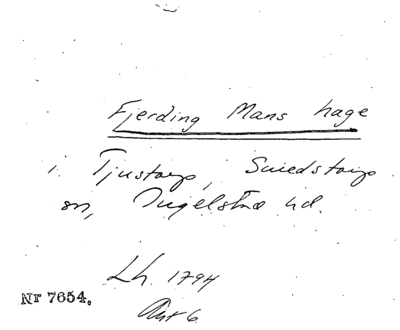 Fjerding Mans hage
i Tjustorp, Smedstorps
sn, Ingelsta hd.
Lh. 1794
Akt 6
Nr 7654.